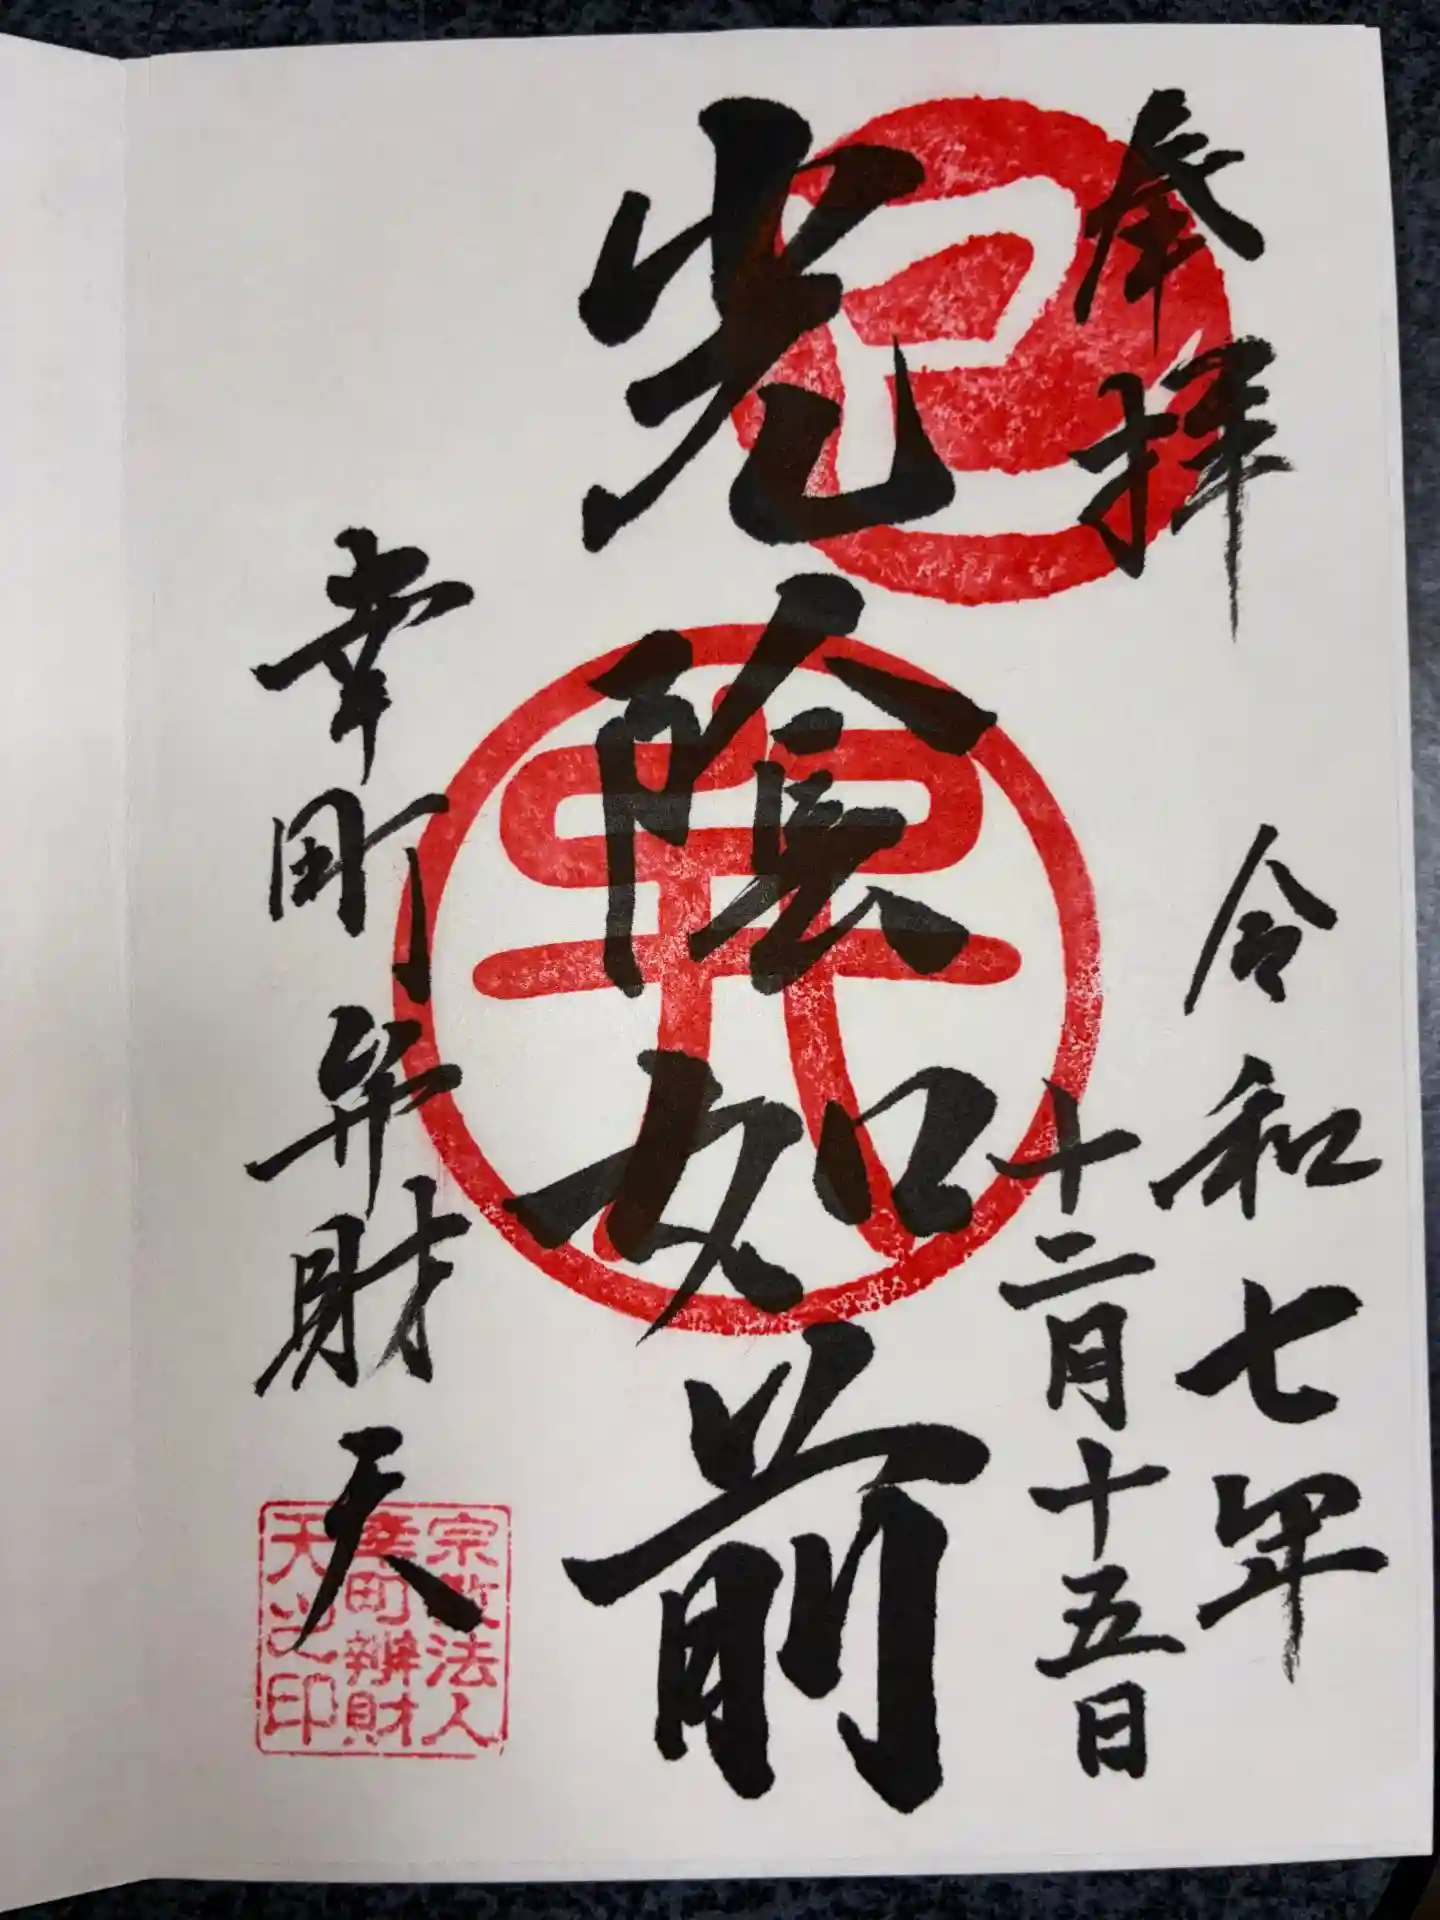 奉拝
令和七年
十二月十五日
巳
光陰如前
幸町弁財天
宗教法人
幸町辨財
天之印